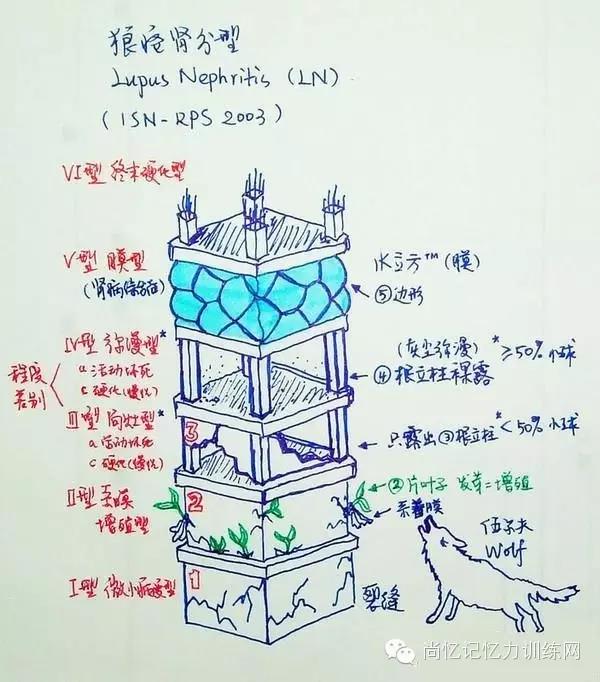 狼疮肾分型
Lupus Nephritis (LN)
(ISN-RPS 2003)
VI型 终末硬化型
V型 膜型
(肾病综合征)
水立方™(膜)
⑤边形
IV型 弥漫型*
a 活动坏死
c 硬化(慢性)
(灰尘弥漫)*≥50%小球
④根立柱裸露
程度差别
III型 局灶型*
a 活动坏死
c 硬化(慢性)
3
只露出③根立柱*<50%小球
II型 系膜
增殖型
2
②片叶子 发芽=增殖
系着膜
I型 微小病变型
1
裂缝
伍尔夫
Wolf
尚忆记忆力训练网